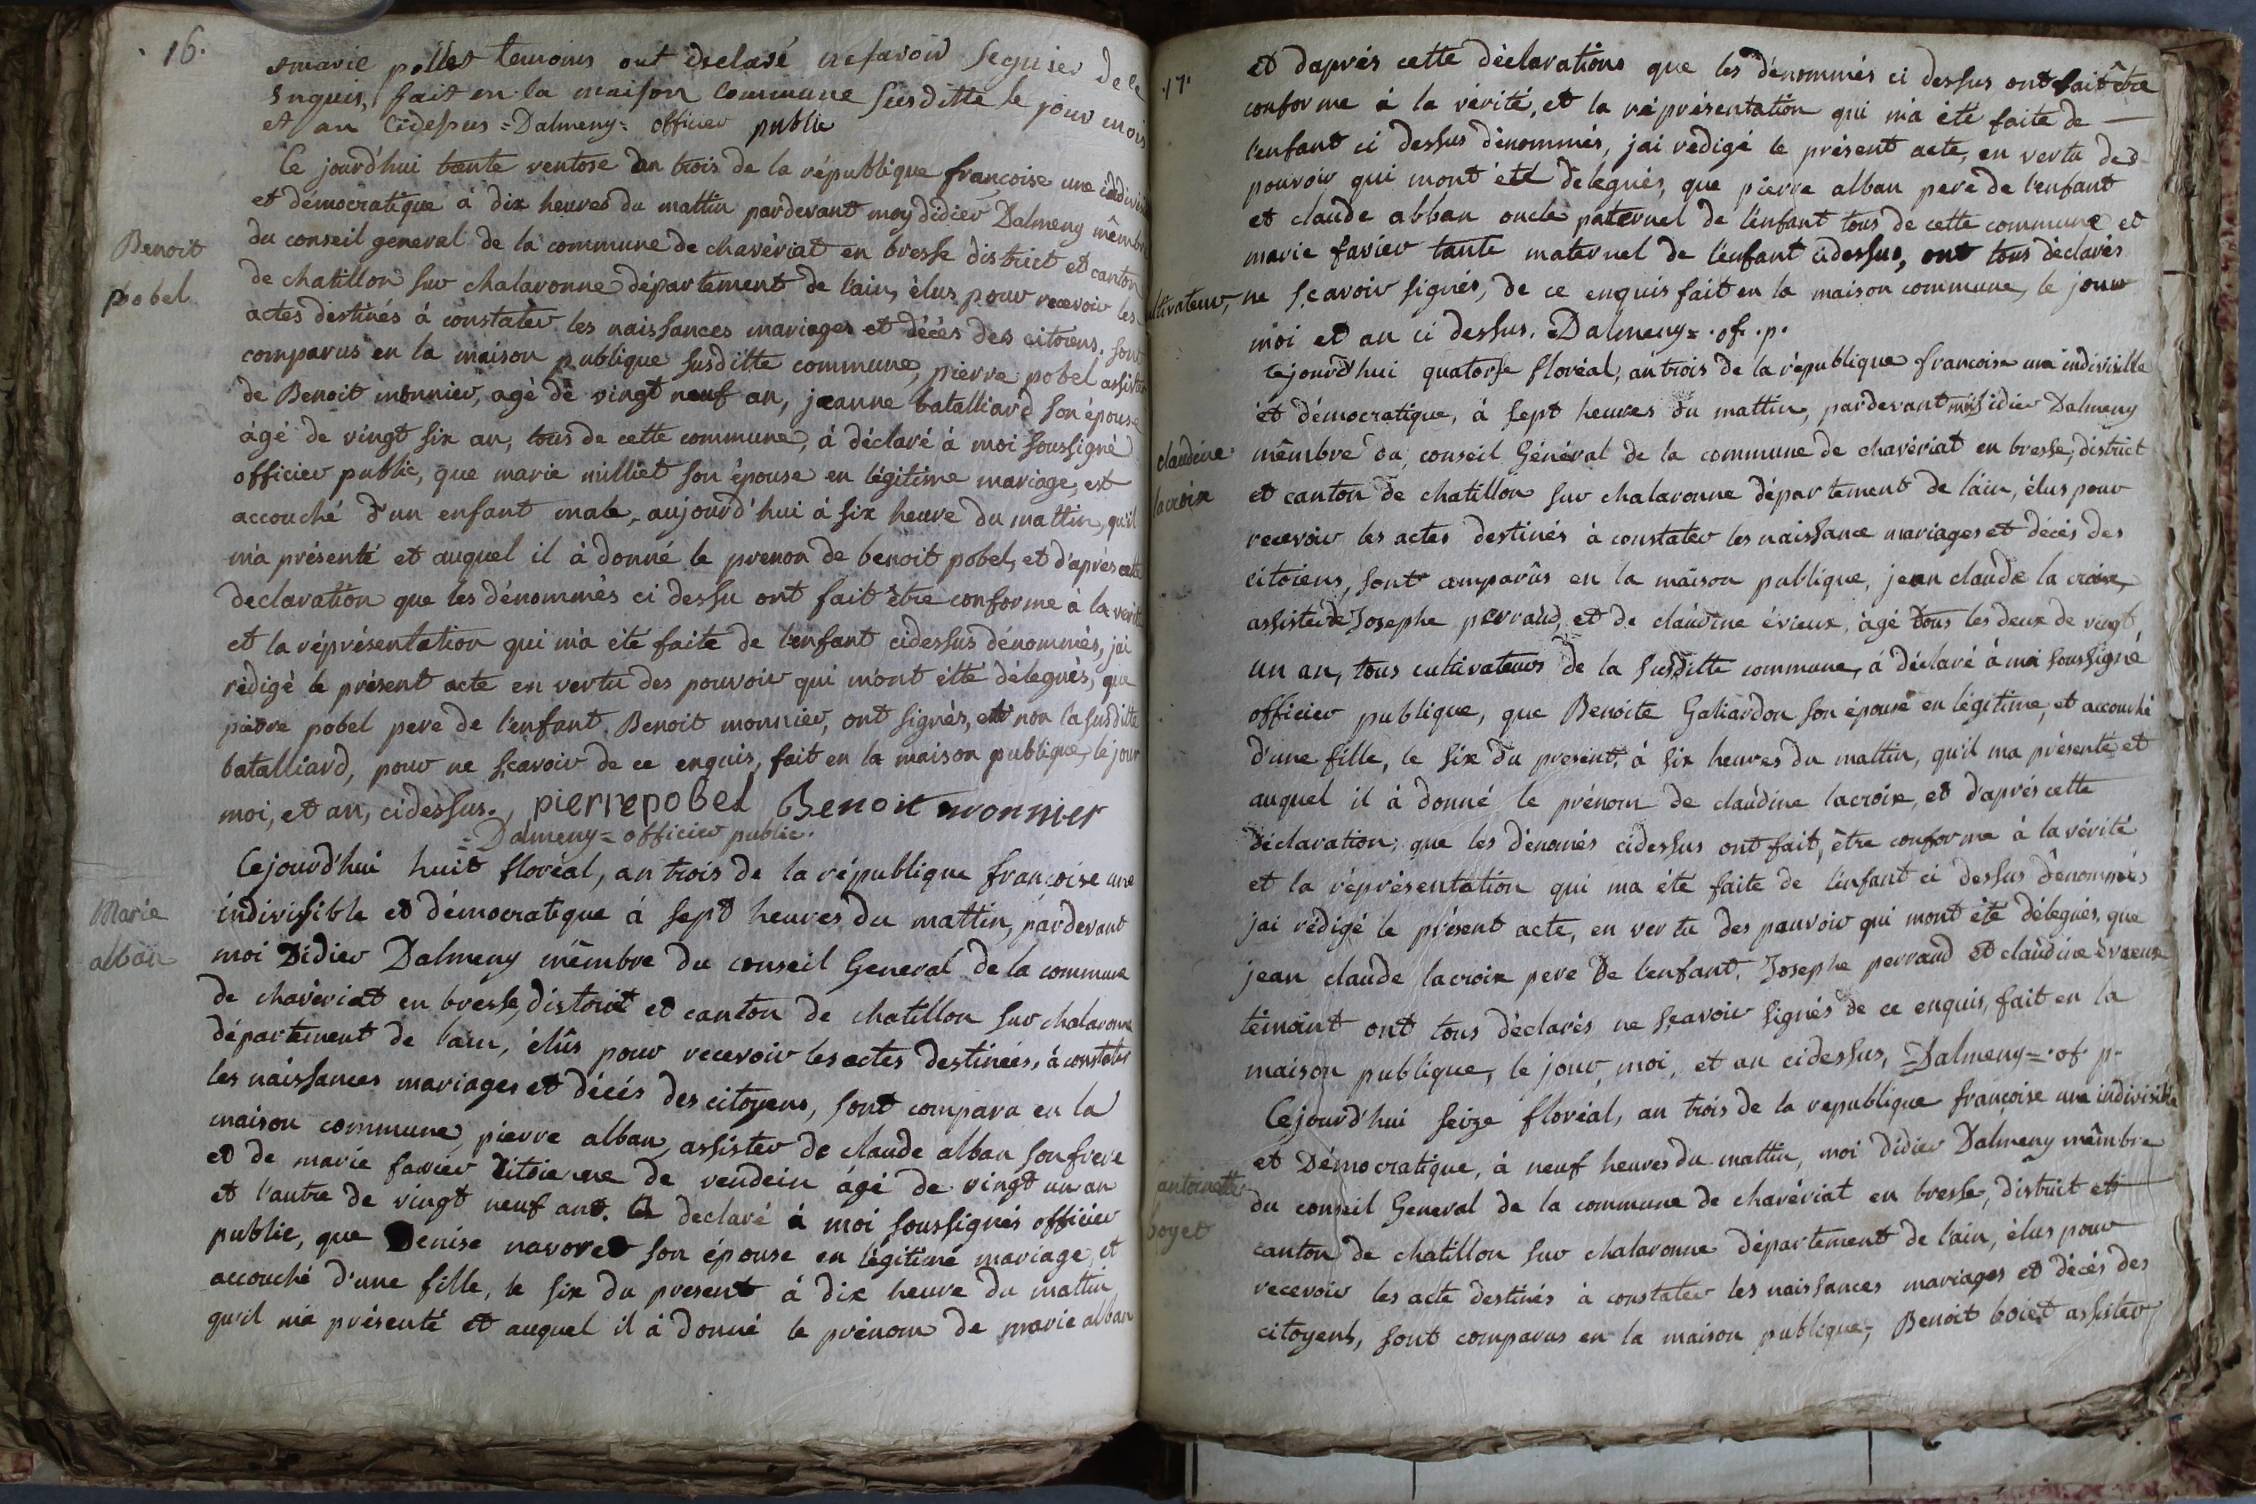 16.
et marie pollet temoins ont declaré ne savoir segnier de ce
Enquis, fait en la maison Commune susditte le jour mois
et an cidessus = Dalmeny = officier public
Benoit
pobel
Ce jourd'hui trente ventose an trois de la république françoise une indivis
et démocratique à dix heures du mattin pardevant moy didier Dalmeny mêmbre
du conseil general de la commune de chavériat en bresse district et canton
de chatillon sur chalaronne département de l'ain, élus pour recevoir les
actes destinés à constater les naissances mariages et décès des citoiens. sont
comparus en la maison publique susditte commune, pierre pobel assister
de Benoit monnier, agé de vingt neuf an, jeanne batalliard son épouse
âgé de vingt six an, tous de cette commune, à déclaré à moi soussigné
officier public, que marie milliet son épouse en légitime mariage, est
accouché d'un enfant male, aujourd'hui à six heure du mattin, qu'il
m'a présenté et auquel il à donné le prenon de benoit pobel, et d'après cette
declaration que les dénommés ci dessu ont fait être conforme à la verité
et la réprésentation qui m'a été faite de l'enfant cidessus dénommés, j'ai
rédigé le présent acte en vertu des pouvoir qui m'ont étte délegués, que
pierre pobel pere de l'enfant, Benoit monnier, ont signés, et non la susditte
batalliard, pour ne sçavoir de ce enquis, fait en la maison publique, le jour
moi, et an, cidessus. pierre pobel Benoit monnier
= Dalmeny = officier public.
Marie
alban
Cejourd'hui huit floréal, an trois de la république françoise une
indivisible et démocratique à sept heures du mattin, pardevant
moi Didier Dalmeny mêmbre du conseil General de la commune
de chavériat en bresse, district et canton de chatillon sur chalaronne
département de l'ain, élûs pour recevoir les actes destinées, à constater
les naissances mariages et décès des citoyens, sont compara en la
maison commune, pierre alban, assister de claude alban son frere
et de marie favier citoienne de vendein âgé de vingt un an
et l'autre de vingt neuf ans. à declaré à moi soussignés officier
public, que Denise navoret son épouse en légitime mariage, et
accouché d'une fille, le six du present à dix heure du mattin
qu'il m'a présenté et auquel il à donné le prénom de marie alban
17.
et d'aprés cette déclarations que les dénommés ci dessus ont fait être
conforme à la vérité, et la réprésentation qui m'a été faite de —
l'enfant ci dessus dénommés, j'ai redigé le présent acte, en vertu des
pouvoir qui m'ont été delegués, que pierre alban pere de l'enfant
et claude abban oncle paternel de l'enfant tous de cette commune et
marie favier tante maternel de l'enfant cidessus, ont tous déclarés
ultivateur, ne sçavoir signés, de ce enquis fait en la maison commune, le jour
moi et an ci dessus. = Dalmeny = . of . p.
claudine
lacroix
Cejourd'hui quatorse floréal, an trois de la république francoise une indivisible
et démocratique, à sept heures du mattin, pardevant moi didier Dalmeny
mêmbre du conseil Général de la commune de chavériat en bresse, district
et canton de chatillon sur chalaronne département de l'ain, élus pour
recevoir les actes destinés à constater les naissance mariages et décès des
citoiens, sont comparûs en la maison publique, jean claude la croix,
assister de Josephe perraud, et de claudine évieux, âgé tous les deux de vingt
un an, tous cultivateurs de la susditte commune, à déclaré à moi soussigné
officier publique, que Benoite Galiardon son épouse en légitime, et accouché
d'une fille, le six du present, à six heures du mattin, qu'il ma présenté et
auquel il à donné le prénom de claudine lacroix, et d'aprés cette
déclaration, que les dénomés cidessus ont fait, être conforme à la vérité
et la réprésentation qui ma été faite de l'enfant ci dessus dénommés
jai rédigé le présent acte, en vertu des pauvoir qui mont été délegués, que
jean claude lacroix pere de l'enfant, Josephe perraud et claudine évieux
témoint ont tous déclarés ne sçavoir signés de ce enquis, fait en la
maison publique, le jour, moi, et an cidessus, = Dalmeny = . of p.
antoinette
boyet
Cejourd'hui seize floréal, an trois de la republique françoise une indivisible
et Démocratique, à neuf heures du mattin, moi didier Dalmeny mêmbre
du conseil General de la commune de chavériat en bresse, district et
canton de chatillon sur chalaronne département de l'ain, élus pour
recevoir les acte destinés à constater les naissances mariages et décès des
citoyens, sont comparus en la maison publique, Benoit boiet assister